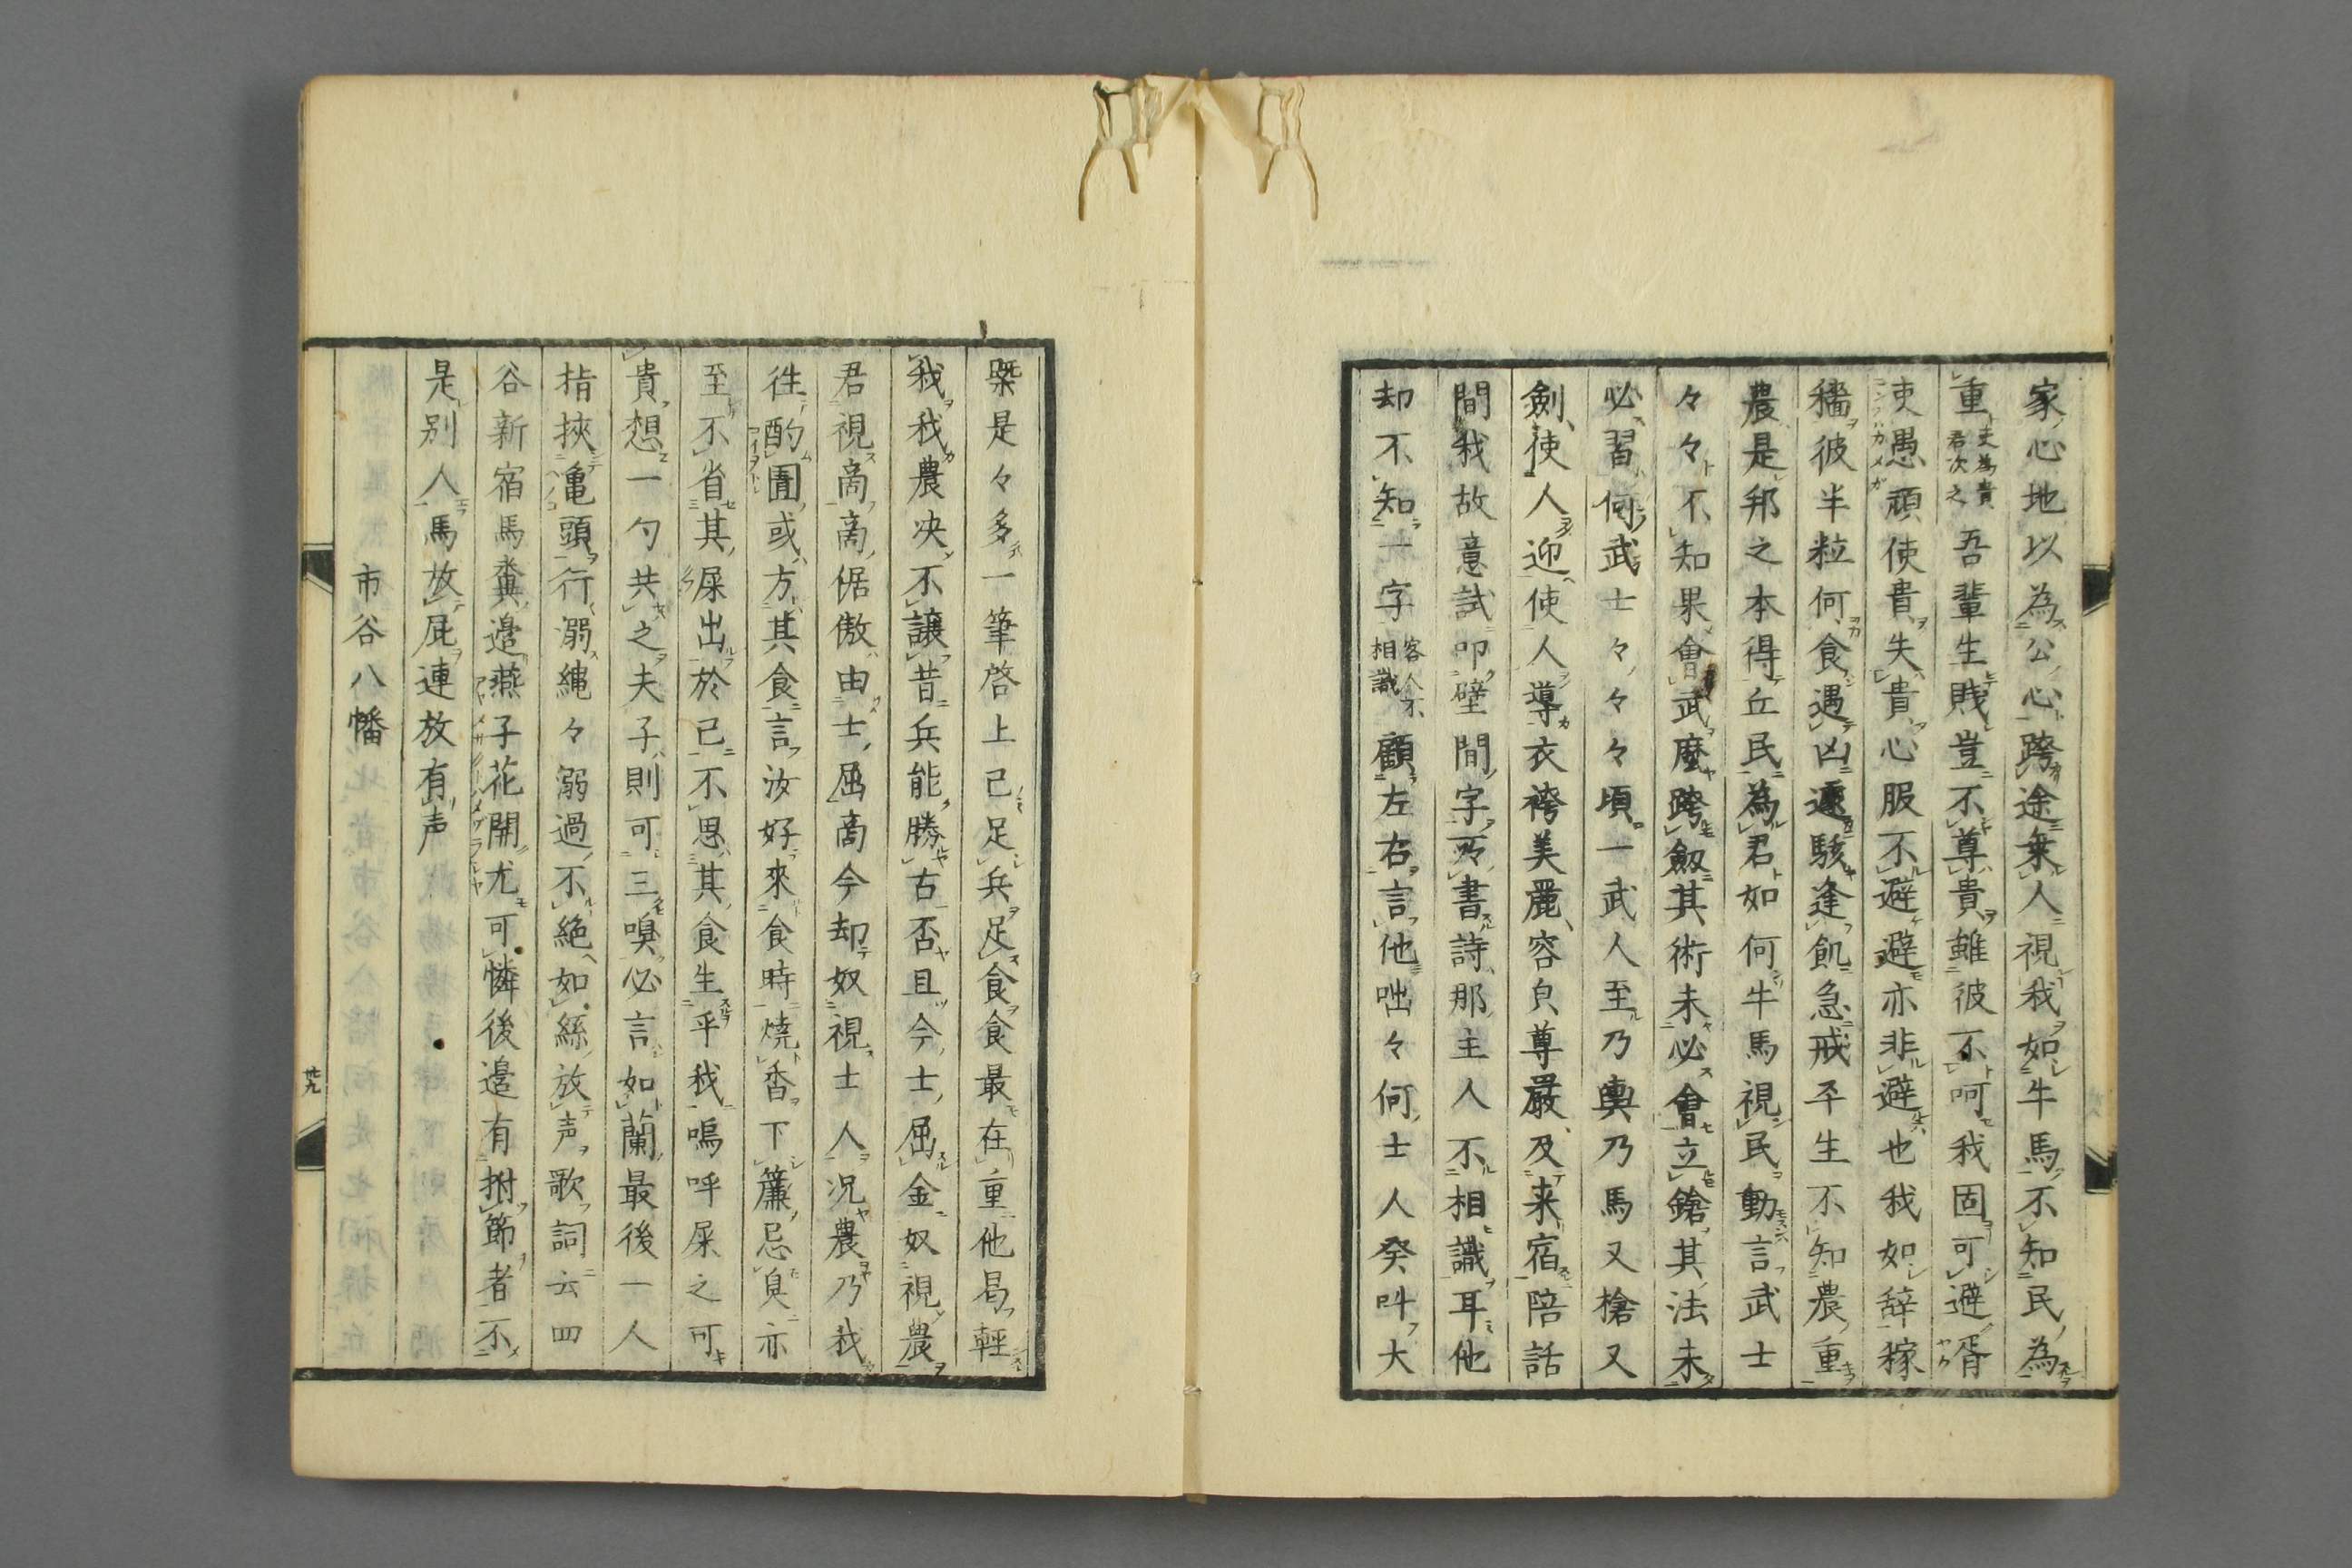 家心地以為公心跨途乗人視我如牛馬不知民為
重夫為貴君次之吾輩生賤豈不尊貴雖彼不呵我固可避胥
吏愚頑使貴失貴心服不避避亦非避也我如辞稼
穡彼半粒何食遇凶遽駭逢飢急戒平生不知農重
農是邦之本得丘民為君如何牛馬視民動言武士
々々不知果會武麼跨劔其術未必會立鎗其法未
必習何武士々々々頃一武人至乃輿乃馬又槍又
劍使人迎使人導衣袴美麗容皃尊嚴及来宿陪話
間我故意試叩壁間字所書詩那主人不相識耳他
却不知一字客人不相識顧左右言他咄々何士人癸叫大
槩是々多一筆啓上己足兵足食食最在重他曷輕
我我農决不讓昔兵能勝古否且今士屈金奴視農
君視商商倨傲由士屈商今却奴視士人况農乃我
徃酌圊或方其食言汝好來食時燒香下簾忌臭亦
至不省其屎出於己不思其食生乎我嗚呼屎之可
貴想一勺共之夫子則可三嗅必言如蘭最後一人
指挾亀頭行溺縄々溺過不絶如絲放声歌詞云四
谷新宿馬糞邉燕子花開尤可憐後邉有拊節者不
是別人馬放屁連放有声
市谷八幡
廿九